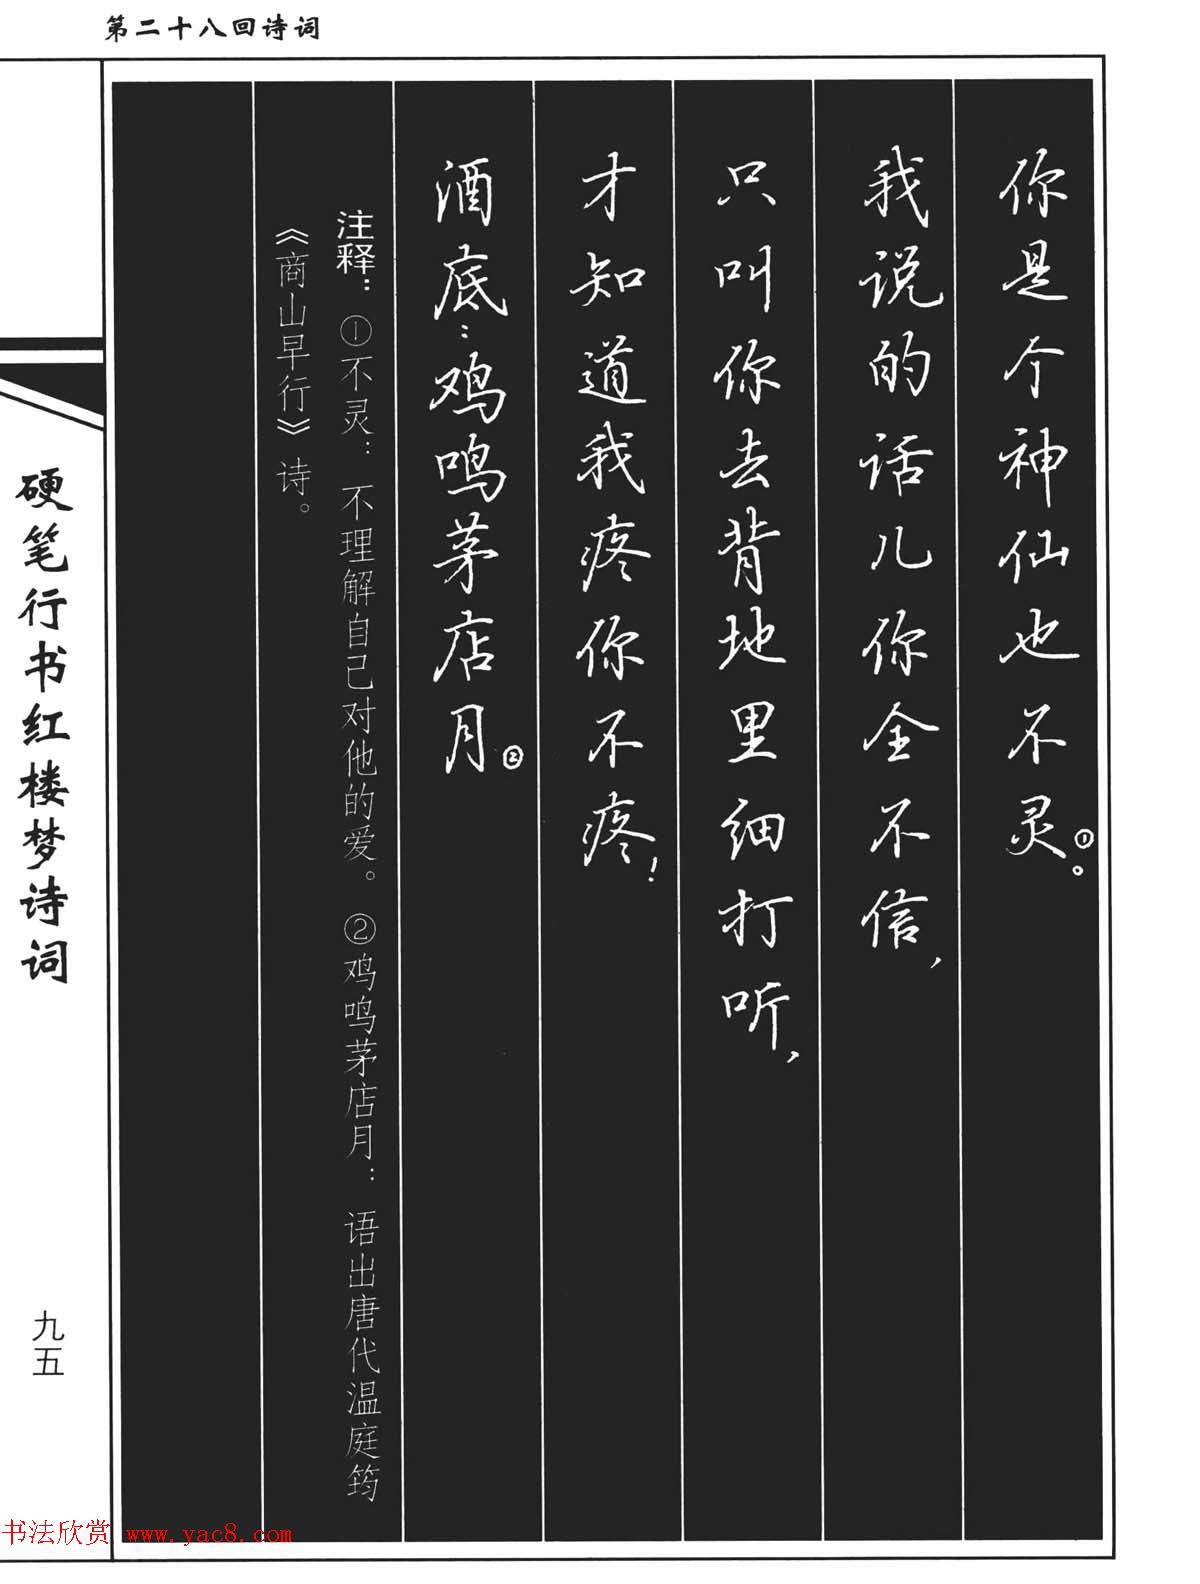 第二十八回诗词
你是个神仙也不灵①。
我说的话儿你全不信，
只叫你去背地里细打听，
才知道我疼你不疼！
酒底：鸡鸣茅店月②。
注释：①不灵：不理解自己对他的爱。②鸡鸣茅店月：语出唐代温庭筠
《商山早行》诗。
硬笔行书红楼梦诗词
九五
书法欣赏 www.yac8.com